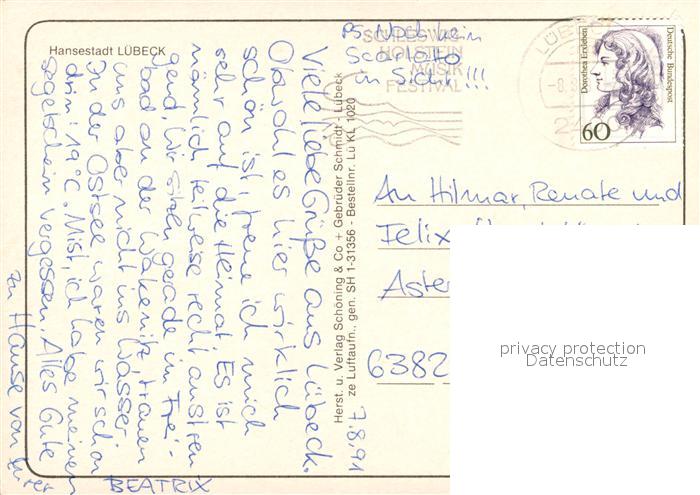 Hansestadt LÜBECK
PS Noch kein
Scarlatto
in Sicht!!!
SCHLESWIG
HOLSTEIN
MUSIK
FESTIVAL
LÜBECK
Dorothea Erxleben
Deutsche Bundespost
60
Viele liebe Grüße aus Lübeck.
Obwohl es hier wirklich
schön ist, freue ich mich
sehr auf die Heimat. Es ist
nämlich teilweise recht anstren
gend. Wir sitzen gerade im Frei-
bad an der Wakenitz, trauen
uns aber nicht ins Wasser.
In der Ostsee waren wir schon
drin: 19°C. Mist, ich habe meinen
Segelschein vergessen. Alles Gute
zu Hause von Eurer
BEATRIX
7.8.91
Herst. u. Verlag Schöning & Co + Gebrüder Schmidt - Lübeck
ze Luftaufn., gen. SH 1-31356 - Bestellnr. Lü KL 1020
An Hilmar, Renate und
Felix
Aster
6382
privacy protection
Datenschutz